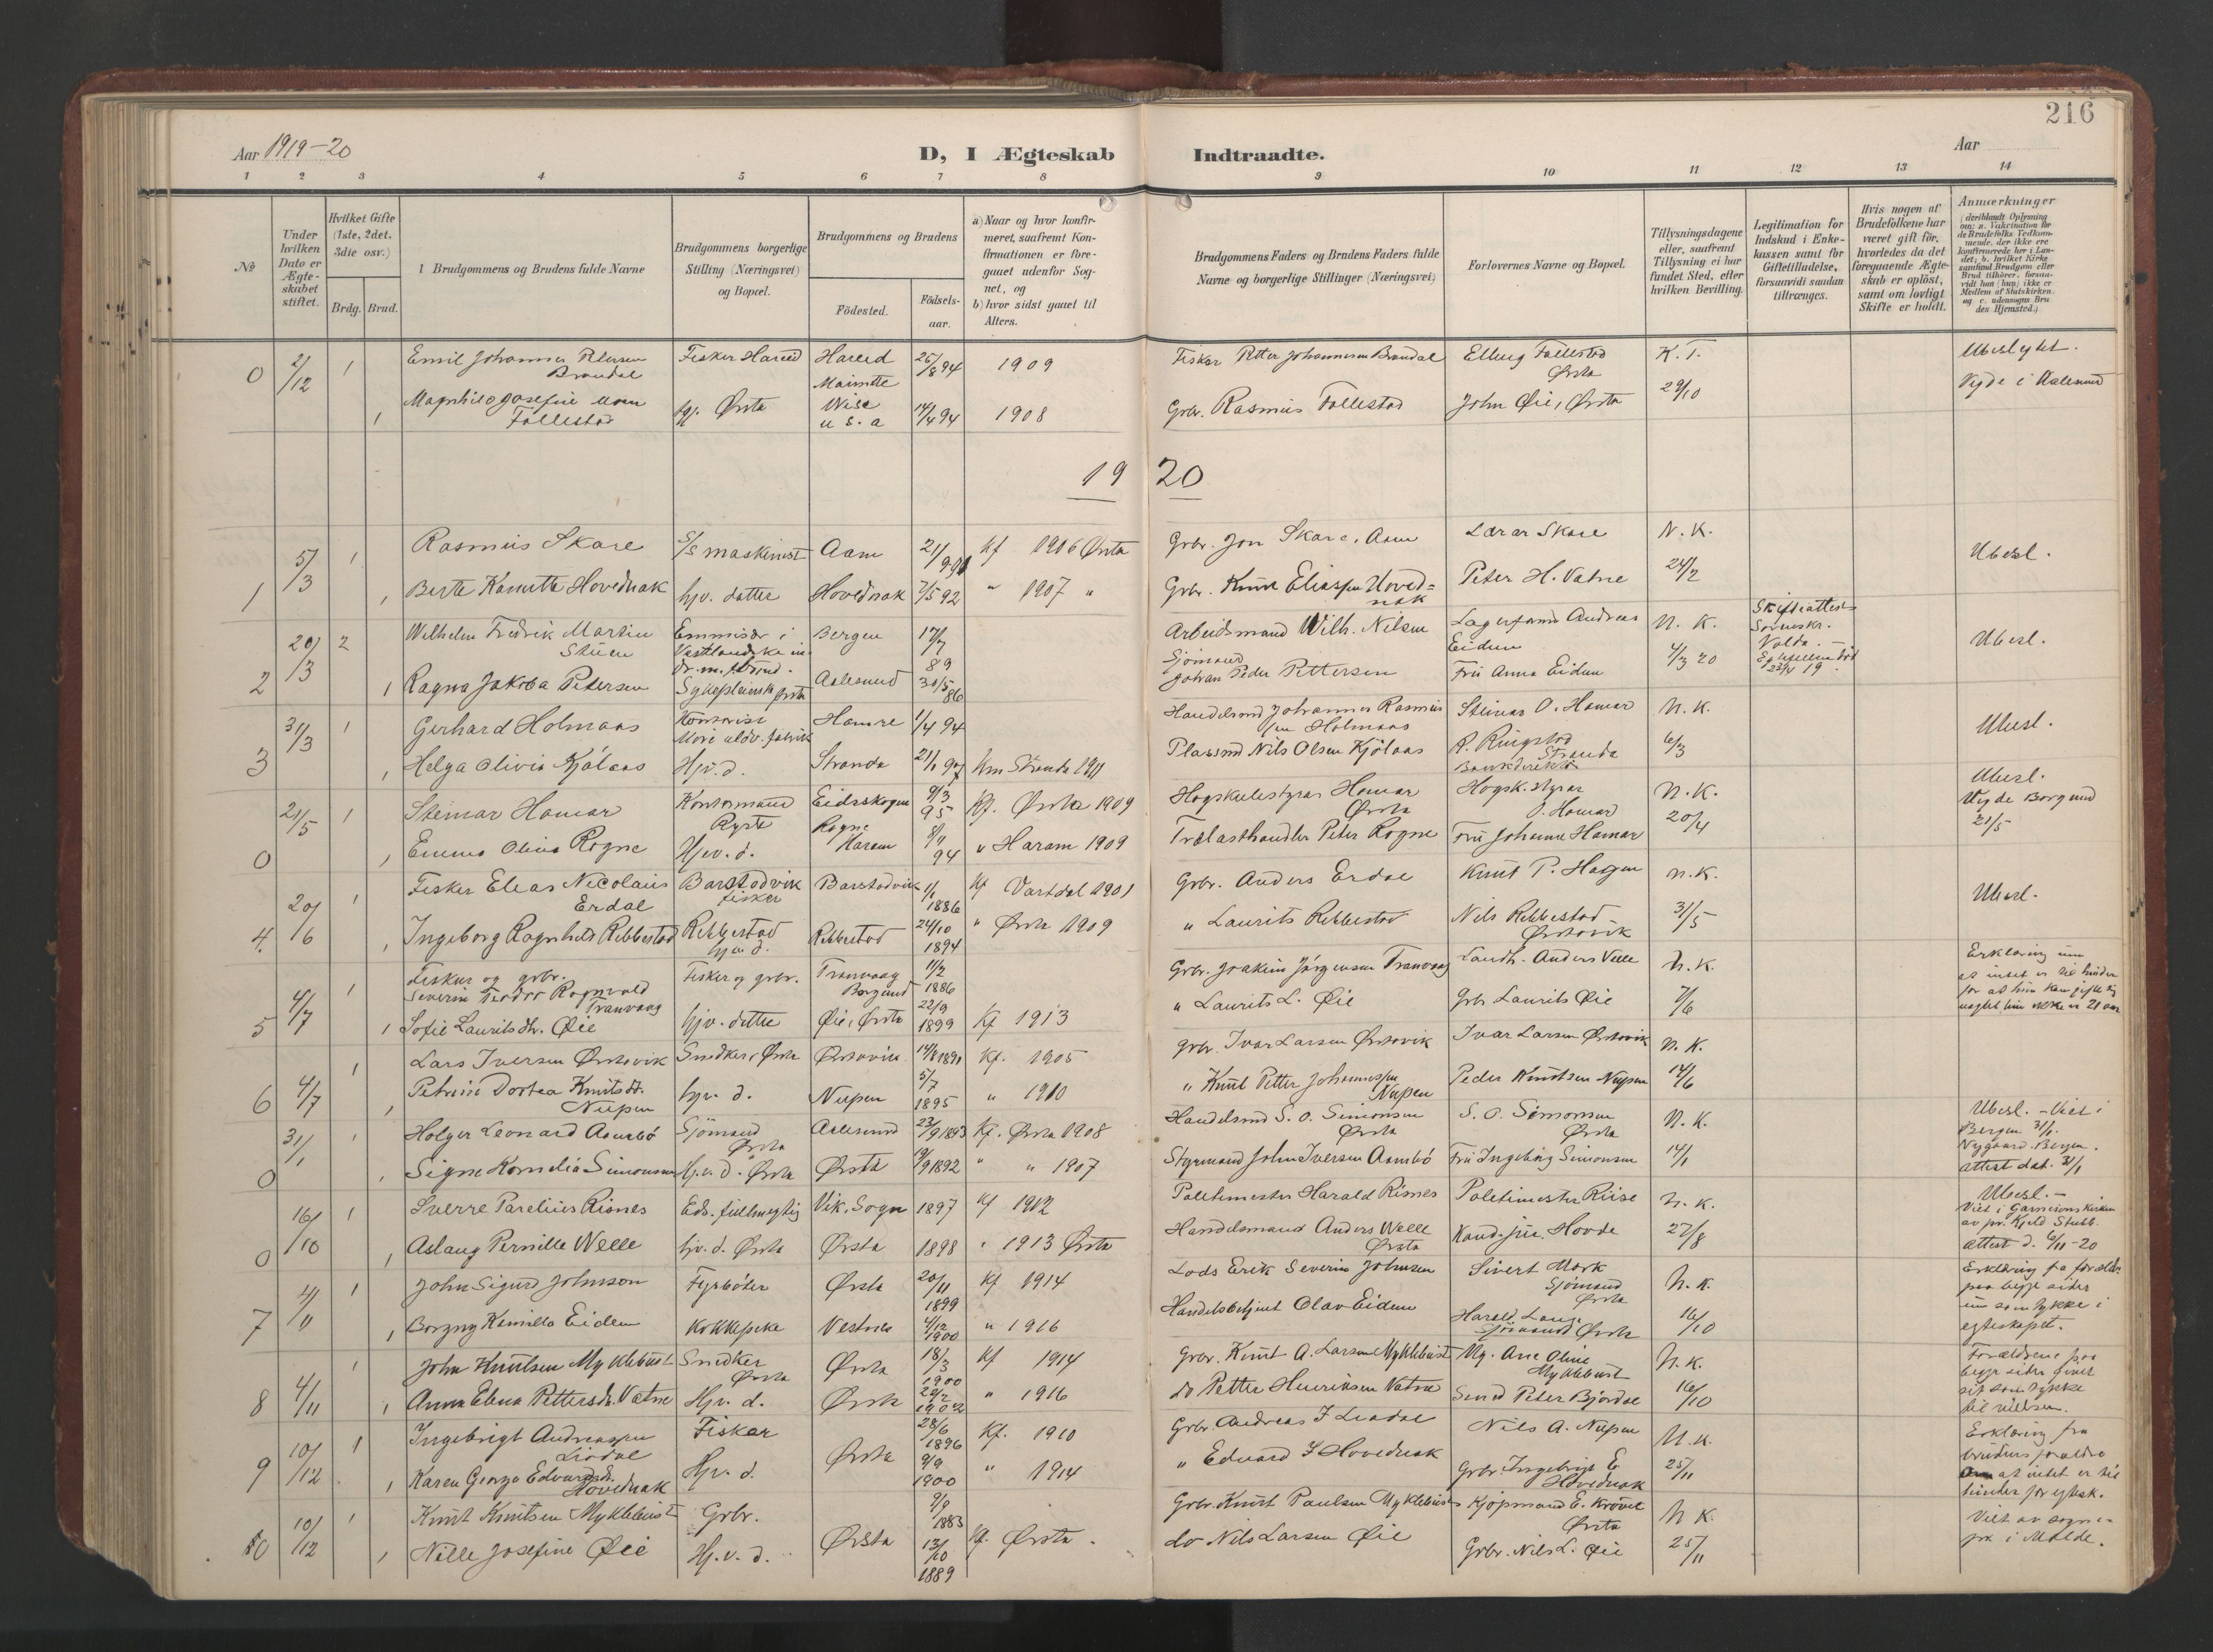 216
Aar 1919-20
D, I Ægteskab Indtraadte.
Aar
1 2 3 4 5 6 7 8 9 10 11 12 13 14
No
Under hvilken Dato er Ægteskabet stiftet.
Hvilket Gifte (1ste, 2det. 3die osv.)
Brdg. Brud.
1 Brudgommens og Brudens fulde Navne
Brudgommens borgerlige Stilling (Næringsvei) og Bopæl.
Brudgommens og Brudens
Födested.
Födselsaar.
a) Naar og hvor konfirmeret, saafremt Konfirmationen er foregaaet udenfor Sognet, og
b) hvor sidst gaaet til Alters.
Brudgommens Faders og Brudens Faders fulde Navne og borgerlige Stillinger (Næringsvei)
Forlovernes Navne og Bopæl.
Tillysningsdagene eller, saafremt Tillysning ei har fundet Sted, efter hvilken Bevilling.
Legitimation for Indskud i Enkekassen samt for Giftetilladelse, forsaavidt saadan tiltrænges.
Hvis nogen af Brudefolkene har været gift för, hvorledes da det foregaaende Ægteskab er oplöst, samt om lovligt Skifte er holdt.
Anmærkninger
0 2/12 1 Emil Johannes Petersen Brandal Fisker Hareid Hareid 25/8 94 1909 Fisker Petter Johannesen Brandal Elling Follestad Ørsta K. T.
1 Follestad hj. Ørsta U.S.A 14/4 94 1908 Grbr. Rasmus Follestad John Øie, Ørsta 29/10
Vigde i Aalesund
19 20
5/3 1 Rasmus Skare S/S maskinist Aam 21/9 91 Kf 1906 Ørsta Grbr. Jon Skare, Aam Lærar Skare N. K. Ubesl.
1 1 Berte Kamitta Hovednak hjv. datter Hovednak 7/5 92 " 1907 " Grbr. Knut Eliassen Hovednak Peter H. Vatne 24/2
20/3 2 Wilhelm Fredrik Martin Stüen Emmisær i Bergen 17/7 89 Arbeidsmand Wilh. Nilsen Lagerformd Andreas Eidem N. K. Skifteattest Volda. Ubesl.
2 1 Ragna Jakoba Petersen Sykepleierske Ørsta Aalesund 30/5 86 Sjömand Johan Peder Pettersen Fru Anna Eidem 4/3 20
31/3 1 Gerhard Holmaas Kontorist Hamre 1/4 94 Handelsmd Johannes Rasmussen Holmaas Steinar O. Hamar N. K. Ubesl.
3 1 Helga Olivia Kjölaas Hjv. d. Stranda 21/1 97 Stranda 1911 Plassmd Nils Olsen Kjölaas R. Ringstad Stranda Bankdirektör 6/3
21/5 1 Steinar Hamar Kontormand Eidsskogen 9/3 95 Kf. Ørsta 1909 Hogskulestyrar Hamar Ørsta Hogsk. styrar O. Hamar N. K. Ubesl. Vigde Borgund 21/5
0 1 Emma Olivia Rogne Hjv. d. Rogne Haram 8/7 94 " Haram 1909 Trælasthandler Peter Rogne Fru Johanne Hamar 20/4
20/6 1 Fisker Elias Nicolaus Erdal Barstadvik fisker Barstadvik 1/1 1886 Kf Vartdal 1901 Grbr. Anders Erdal Knut P. Hagen N. K. Ubesl.
4. 1 Ingeborg Ragnhild Rebbestad Rebbestad hjv. d. Rebbestad 24/10 1894 " Ørsta 1909 " Laurits Rebbestad Nils Rebbestad Ørstavik 31/5
4/7 1 Fisker og grbr. Severin Teodor Ragnvald Tranvaag Fisker og grbr. Tranvaag Borgund 11/2 1886 Grbr. Joakim Jörgensen Tranvaag Landh. Anders Velle N. K. Erklæring um at intet er til hinder for at hun kan gifte sig
5 1 Sofie Lauritsdtr. Øie hjv. datter Øie, Ørsta 22/9 1899 Kf 1913 " Laurits L. Øie Grbr Laurits Øie 7/6
4/7 1 Lars Iversen Ørstavik Snedker, Ørsta Ørstavik 14/8 1890 Kf. 1905 grbr. Ivar Larsen Ørstavik Ivar Larsen Ørstavik N. K.
6 1 Petrine Dortea Knutsdt. Nupen hjv. d. Nupen 5/7 1895 " 1910 " Knut Petter Johannessen Nupen Peder Knutsen Nupen 14/6
31/1 1 Holger Leonard Aambö Sjömand Ørsta Aalesund 23/9 1893 Kf. Ørsta 1908 Handelsmd S. O. Simonsen Ørsta S. O. Simonsen Ørsta N. K. Ubesl. - Viet i Bergen 31/1. Nygaard. Bergen. attest dat. 31/1
0 1 Signe Kornelia Simonsen Hjv. d. Ørsta Ørsta 19/9 1892 " " 1907 Styrmand John Iversen Aambö Fru Ingeborg Simonsen 14/1
16/10 1 Sverre Parelius Risnes Eds. fullmegtig Vik. Sogn 1897 Kf 1912 Politimester Harald Risnes Politimester Riise N. K. Ubesl. - Viet i Garnisonskirken av pr. Kjeld Stubb. attest d. 6/11-20
0 1 Aslaug Pernille Welle hjv. d. Ørsta Ørsta 1898 " 1913 Ørsta Handelsmand Anders Welle Ørsta Kand. jur. Hovde 27/8
4/11 1 John Sigurd Johnson Fyrböter Ørsta 20/11 1899 Kf 1914 Lods Erik Severin Johnsen Sivert Mork Sjömand Ørsta N. K. Erklæring fra forældre paa begge sider um samtykke i egteskapet.
7 1 Borgny Kamilla Eidem Kokkepike Vestnes 4/12 1900 " 1916 Handelsbetjent Olav Eidem Harald Lange Sjömand Ørsta 16/10
4/11 1 John Knutsen Myklebust Snedker Ørsta Ørsta 18/3 1900 Kf 1914 Grbr. Knut A. Larsen Myklebust Ane Oline Myklebust N. K. Forældrene paa begge sider givet sit samtykke til vielsen.
8 1 Anna Elena Pettersdt. Vatne Hjv. d. Ørsta 20/2 1902 " 1916 do Petter Henriksen Vatne Smed Peter Bjørdal 16/10
10/12 1 Ingebrigt Andreassen Liadal Fisker Ørsta 28/6 1896 Kf. 1910 Grbr. Andreas J Liadal Nils A. Nupen N. K. Erklæring fra brudens foraldre at intet er til hinder for egtesk.
9 1 Karen Gurga Edvardsd. Hovednak Hjv. d. 9/9 1900 " 1914 " Edvard J Hovednak Grbr. Ingebrigt E Hovednak 25/11
10/12 1 Knut Knutsen Myklebust Grbr. Ørsta 9/9 1883 Kf. Ørsta. Grbr. Knut Paulsen Myklebust Kjöpmand E. Krövel Ørsta N K. Viet av sogne- pr i Molde.
10 1 Nille Josefine Øie Hj. v. d. 13/10 1889 do Nils Larsen Øie Grbr. Nils L. Øie 25/11